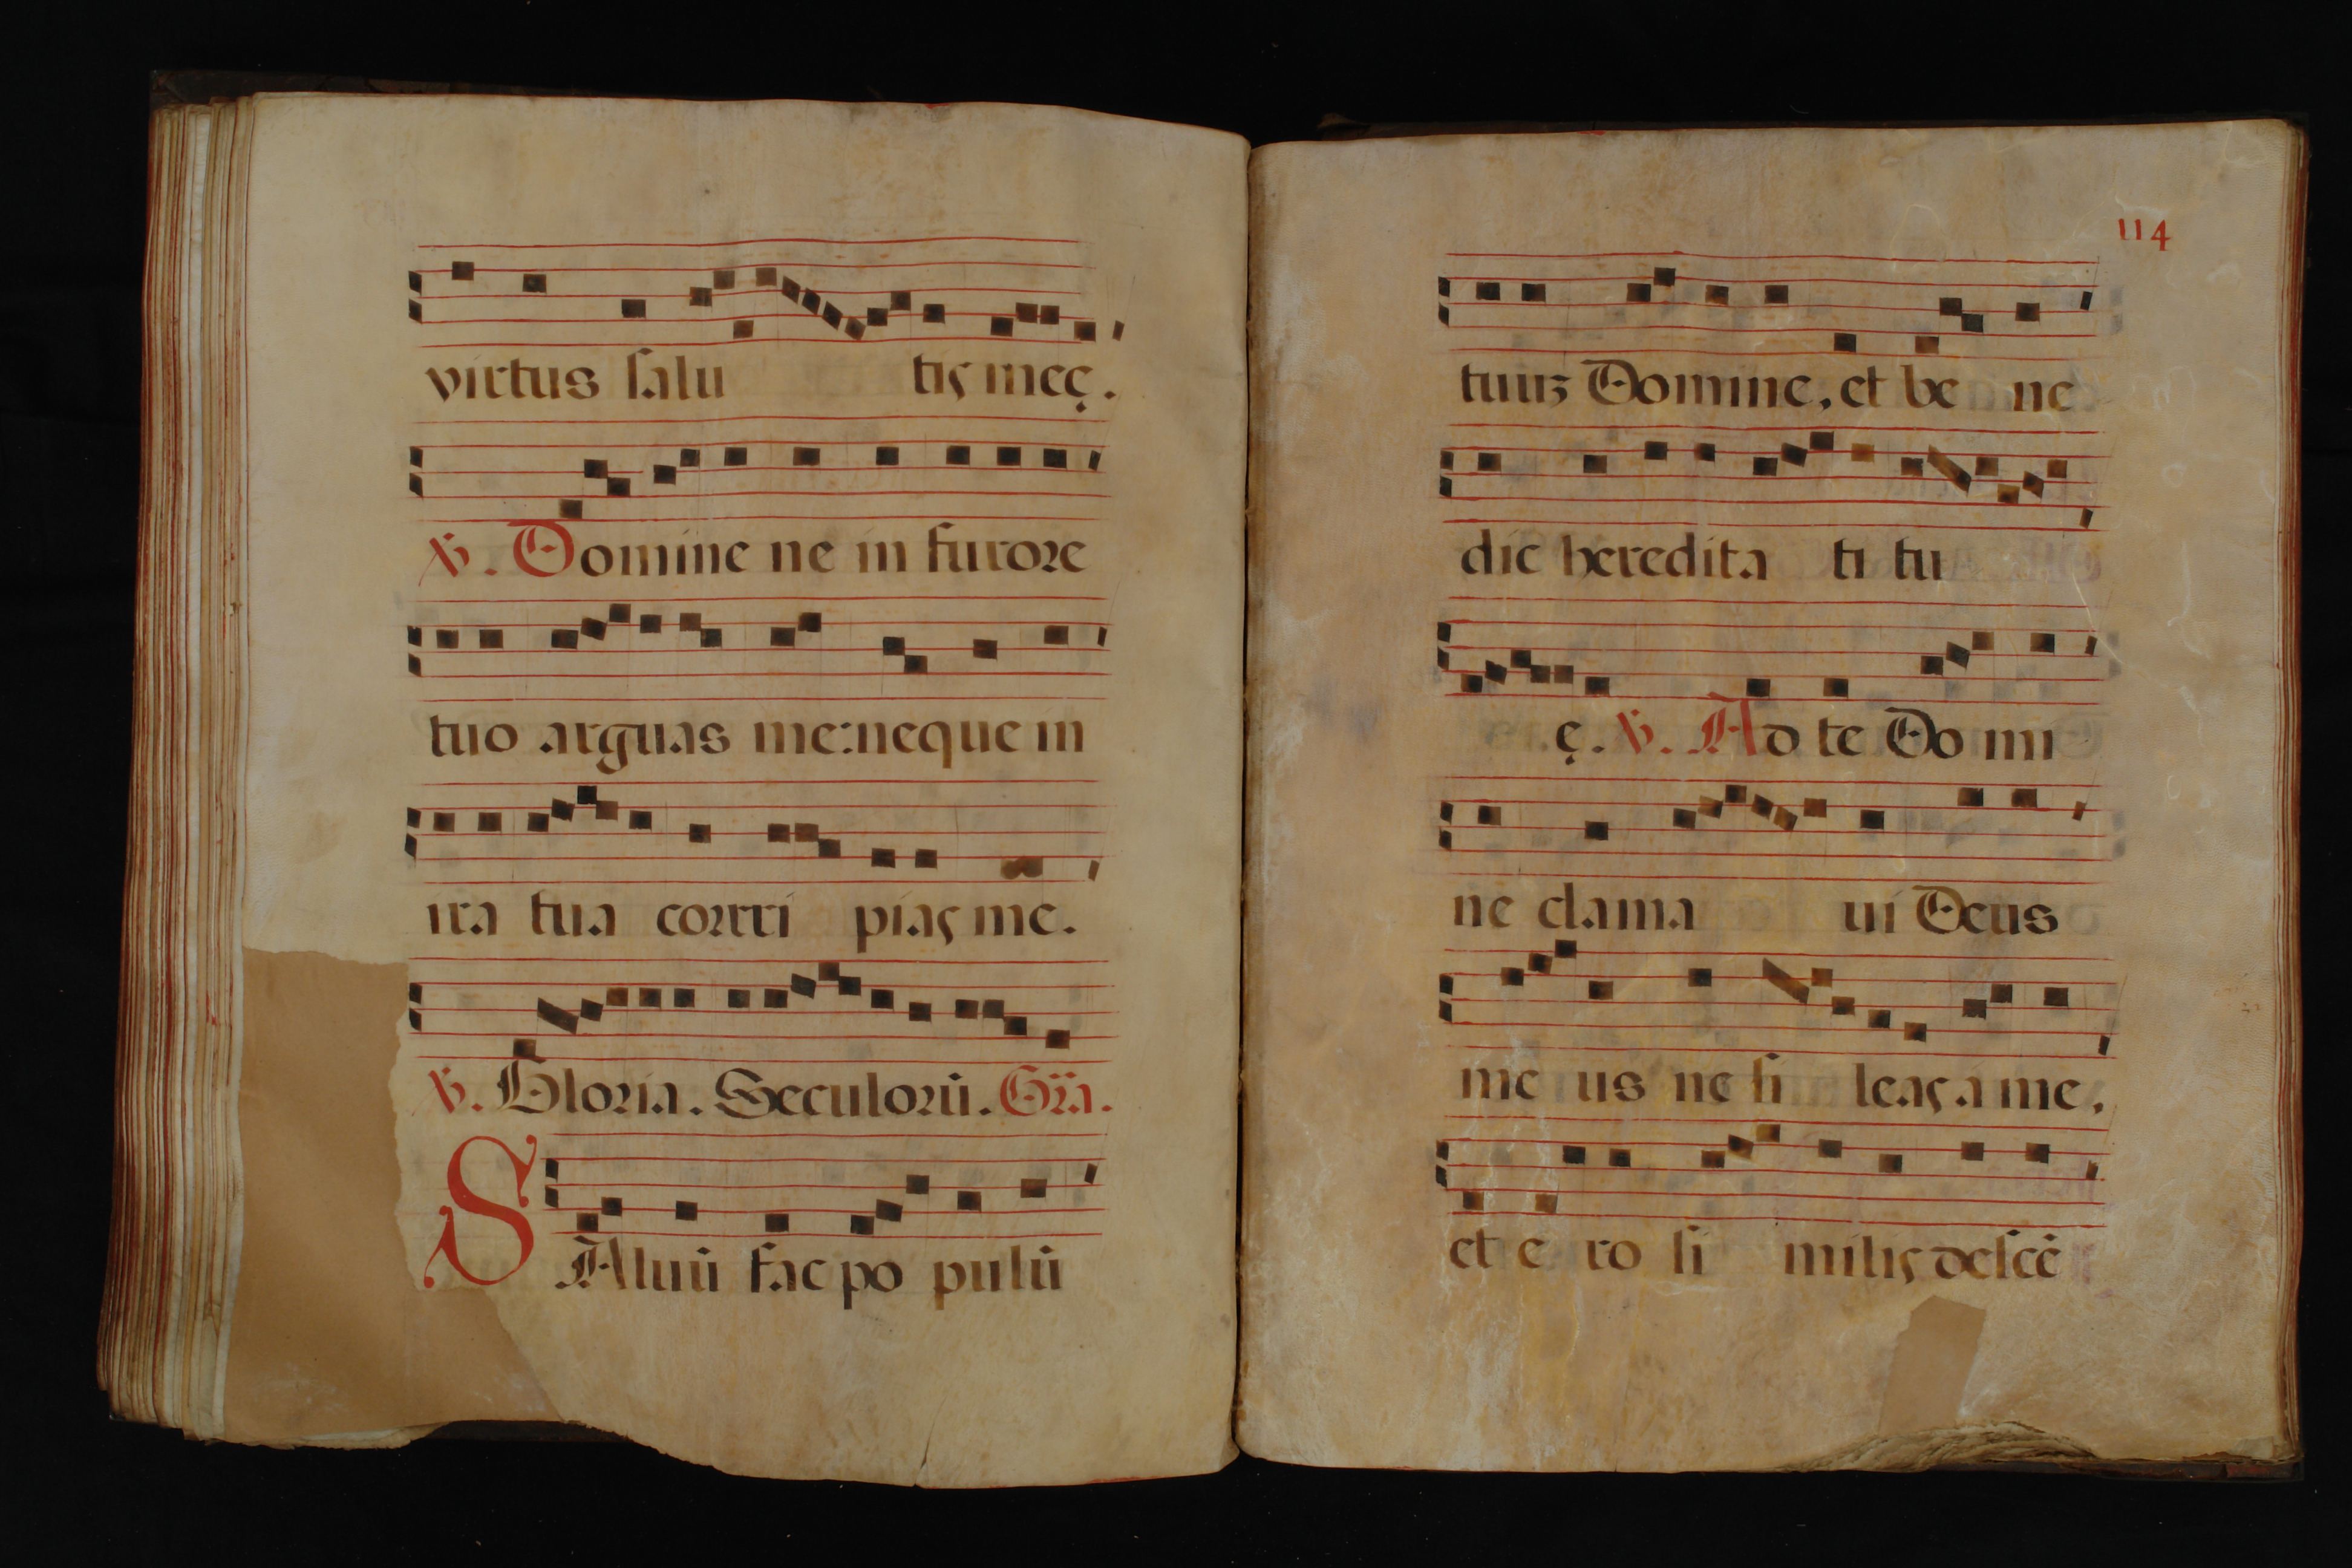 virtus salu tis meę.
℣. Domine ne in furore
tuo arguas me: neque in
ira tua corri pias me.
℣. Gloria. Seculorū. Grã.
SAluū fac po pulū
114
tuuȝ Domine, et be ne
dic heredita ti tu
ę. ℣. Ad te Do mi
ne clama ui Deus
me us ne si leas a me,
et e ro si milis descē